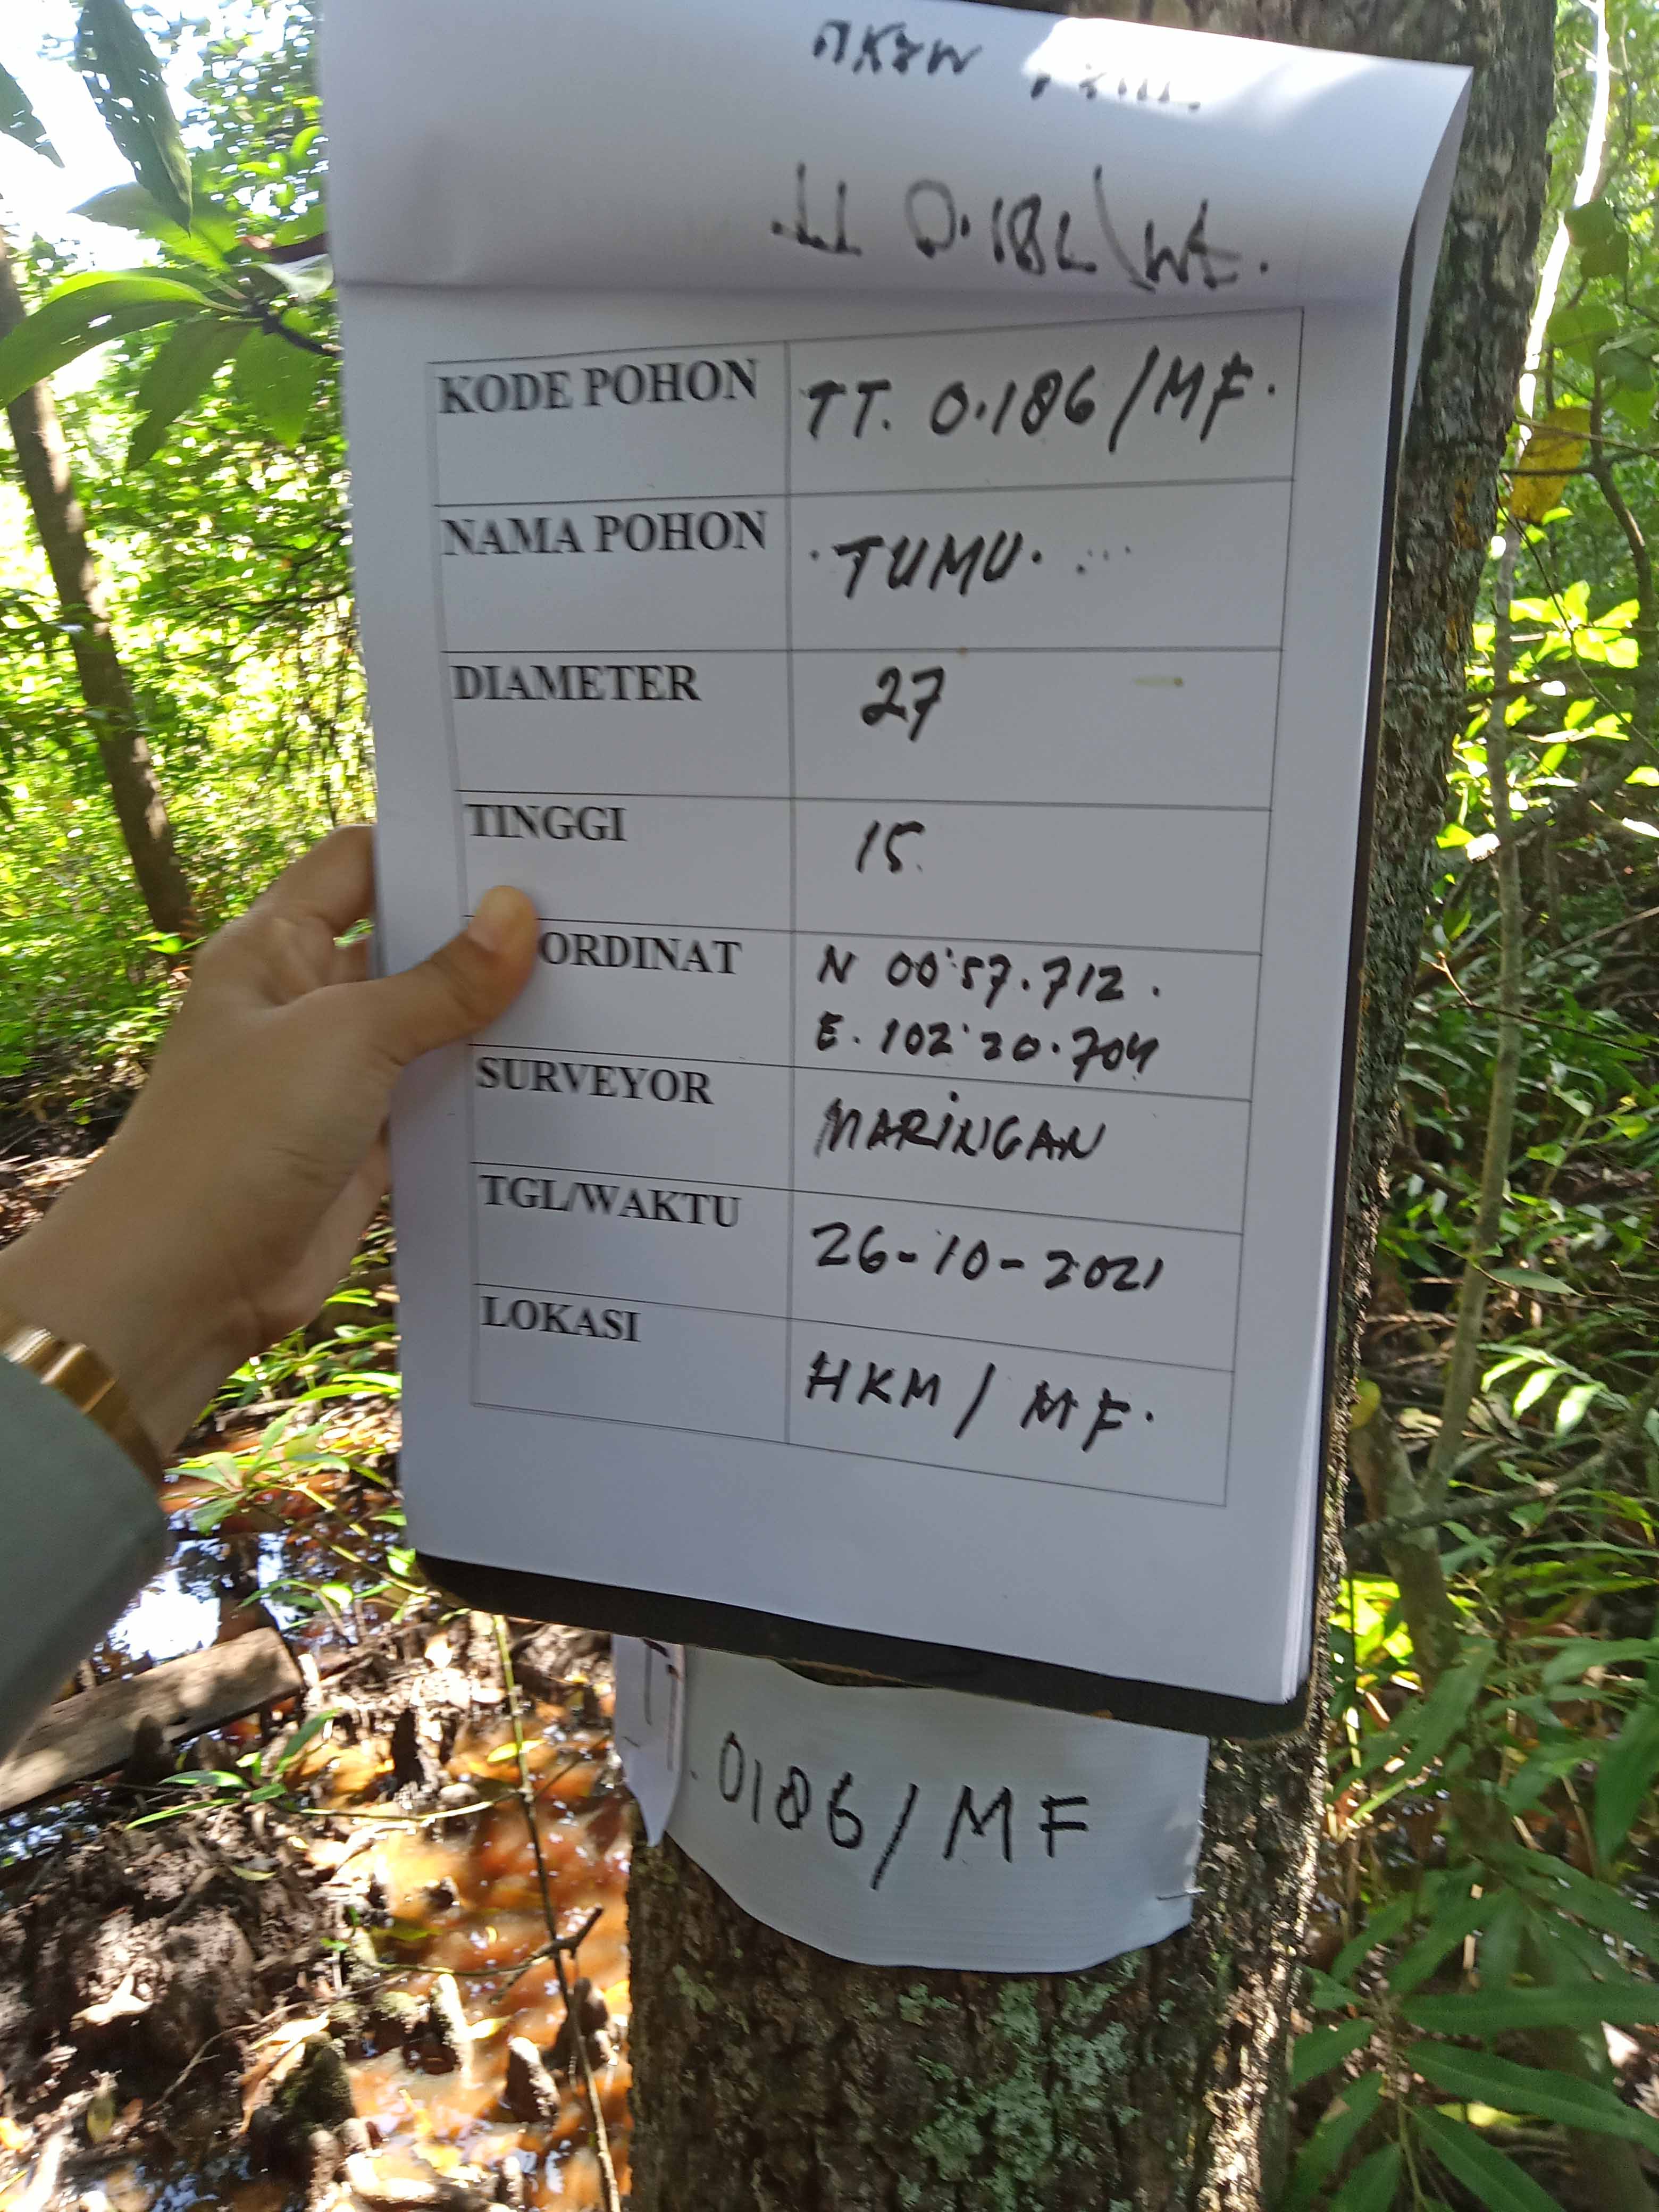 KODE POHON TT. 0.186/MF.
NAMA POHON TUMU.
DIAMETER 27
TINGGI 15.
ORDINAT N 00°57.712.
E. 102°20.704
SURVEYOR MARINGAN
TGL/WAKTU 26-10-2021
LOKASI HKM / MF.
TT
. 0186/MF